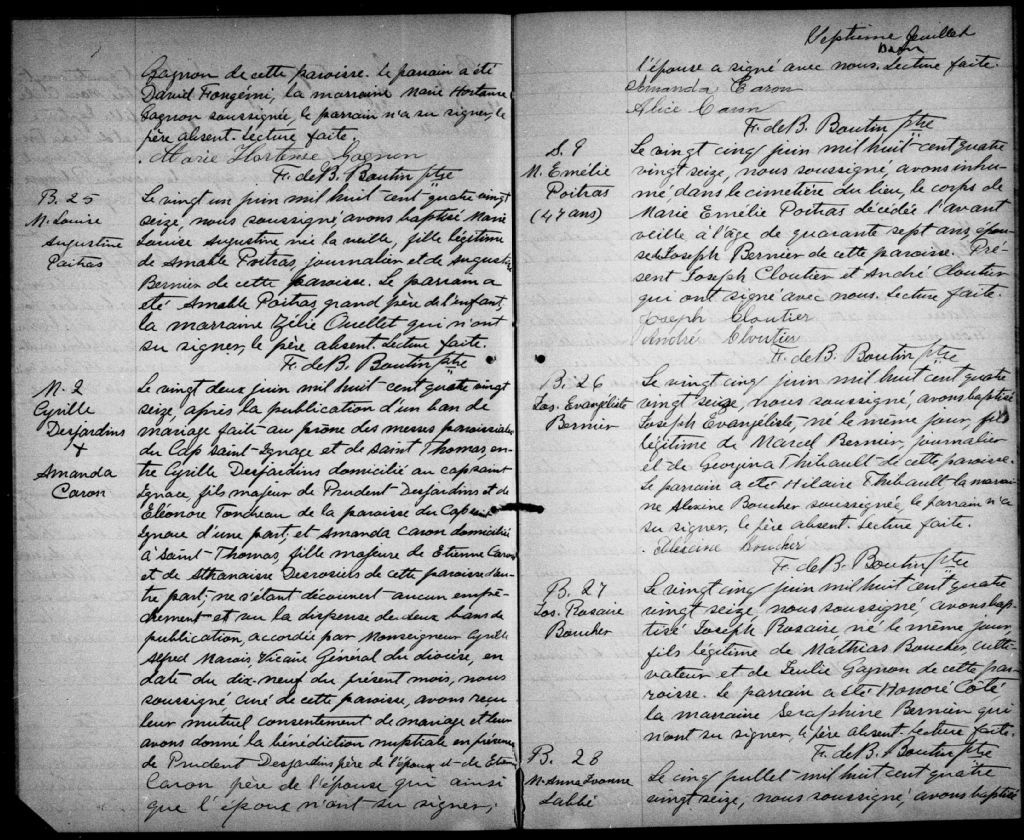 Gagnon de cette paroisse. Le parrain a été
David Fongémi, la marraine Marie Hortense
Gagnon soussignée, le parrain n'a su signer, le
père absent. Lecture faite.
Marie Hortense Gagnon
F. de B. Boutin ptre
B. 25
M. Louise
Augustine
Poitras
Le vingt un juin mil huit cent quatre vingt
seize, nous soussigné avons baptisé Marie
Louise Augustine née la veille, fille légitime
de Amable Poitras, journalier et de Augustine
Bernier de cette paroisse. Le parrain a
été Amable Poitras grand père de l'enfant,
la marraine Zélie Ouellet qui n'ont
su signer, le père absent. Lecture faite.
F. de B. Boutin ptre
M. 2
Cyrille
Desjardins
+
Amanda
Caron
Le vingt deux juin mil huit-cent quatre vingt
seize, après la publication d'un ban de
mariage faite au prône des messes paroissiales
du Cap Saint-Ignace et de Saint Thomas, en-
tre Cyrille Desjardins domicilié au cap saint
Ignace, fils majeur de Prudent Desjardins et de
Eléonore Tondreau de la paroisse du Cap saint
Ignace d'une part; et Amanda Caron domiciliée
à Saint-Thomas, fille majeure de Etienne Caron
et de Athanaisse Desrosiers de cette paroisse d'au-
tre part; ne s'étant découvert aucun empê-
chement et vu la dispense de deux bans de
publication, accordée par Monseigneur Cyrille
Alfred Marois, Vicaire Général du diocèse, en
date du dix-neuf du présent mois, nous
soussigné curé de cette paroisse, avons reçu
leur mutuel consentement de mariage et leur
avons donné la bénédiction nuptiale en présence
de Prudent Desjardins père de l'époux et de Etienne
Caron père de l'épouse qui ainsi
que l'époux n'ont su signer;
Septième feuillet
l'épouse a signé avec nous. Lecture faite.
Amanda Caron
Alice Caron
F. de B. Boutin ptre
S. 9
M. Emélie
Poitras
(47 ans)
Le vingt cinq juin mil huit-cent quatre
vingt seize, nous soussigné, avons inhu-
mé, dans le cimetière du lieu, le corps de
Marie Emélie Poitras décédée l'avant
veille à l'âge de quarante sept ans, épou-
se de Joseph Bernier de cette paroisse. Pré-
sent Joseph Cloutier et André Cloutier
qui ont signé avec nous. Lecture faite.
Joseph Cloutier
André Cloutier
F. de B. Boutin ptre
B. 26
Jos. Evangéliste
Bernier
Le vingt cinq juin mil huit cent quatre
vingt seize, nous soussigné, avons baptisé
Joseph Evangéliste, né le même jour, fils
légitime de Marcel Bernier, journalier
et de Georgina Thibault de cette paroisse.
Le parrain a été Hilaire Thibault la marrai-
ne Alexine Boucher soussignée, le parrain n'a
su signer, le père absent. Lecture faite.
Alexine Boucher
F. de B. Boutin ptre
B. 27
Jos. Rosaire
Boucher
Le vingt cinq juin mil huit cent quatre
vingt seize, nous soussigné, avons bap-
tisé Joseph Rosaire, né le même jour,
fils légitime de Mathias Boucher, culti-
vateur et de Julie Gagnon de cette pa-
roisse. Le parrain a été Honoré Côté
la marraine Seraphine Bernier qui
n'ont su signer, le père absent. Lecture faite.
F. de B. Boutin ptre
B. 28
M. Anna Yvonne
Labbé
Le cinq juillet mil huit cent quatre
vingt seize, nous soussigné, avons baptisé